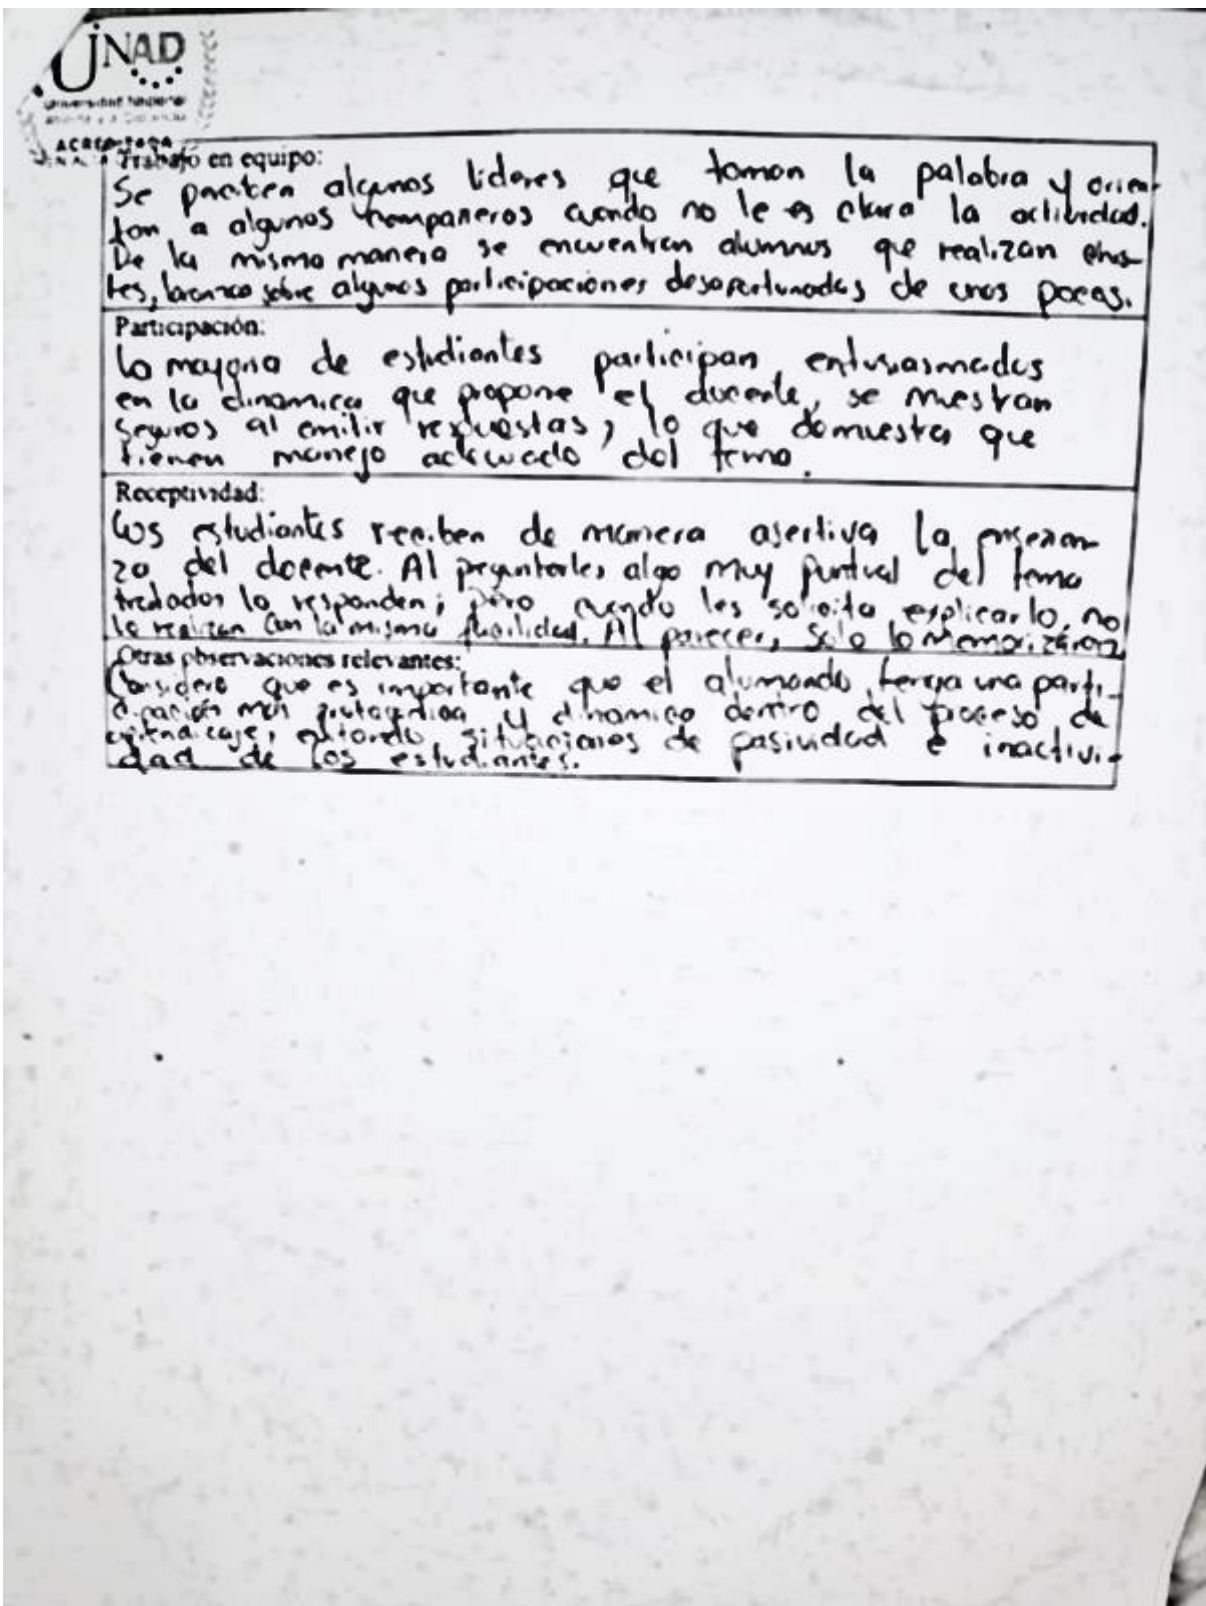 UNAD
Universidad Nacional
Abierta y a Distancia
ACREDITADA
Trabajo en equipo:
Se perciben algunos lideres que toman la palabra y orien-
tan a algunos compañeros cuando no le es clara la actividad.
De la misma manera se encuentran alumnos que realizan chis-
tes, bromas sobre algunas participaciones desafortunadas de unos pocos.
Participación:
La mayoria de estudiantes participan entusiasmados
en la dinamica que propone el docente, se muestran
seguros al emitir respuestas, lo que demuestra que
tienen manejo adecuado del tema.
Receptividad:
Los estudiantes reciben de manera asertiva la enseñan-
za del docente. Al preguntarles algo muy puntual del tema
tratados lo responden; pero cuando les solicita explicarlo, no
lo realizan con la misma facilidad. Al parecer, solo lo memorizaron
Otras observaciones relevantes:
Considero que es importante que el alumnado tenga una parti-
cipación más protagónica y dinamica dentro del proceso de
aprendizaje, evitando situaciones de pasividad e inactivi-
dad de los estudiantes.